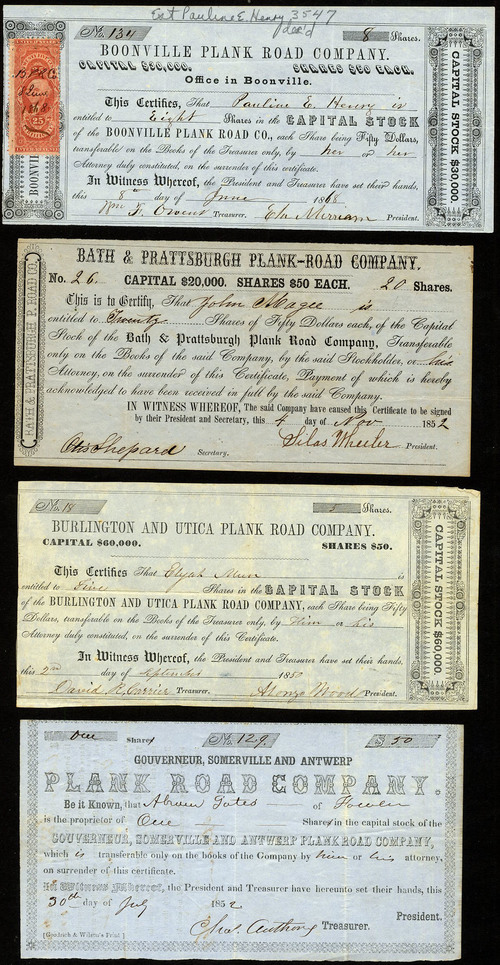 Est Pauline E. Henry 3547
dec'd
No. 134 8 Shares.
BOONVILLE PLANK ROAD COMPANY.
CAPITAL $30,000. SHARES $50 EACH.
Office in Boonville.
This Certifies, That Pauline E. Henry is
entitled to Eight Shares in the CAPITAL STOCK
of the BOONVILLE PLANK ROAD CO., each Share being Fifty Dollars,
transferable on the Books of the Treasurer only, by her or her
Attorney duly constituted, on the surrender of this certificate.
In Witness Whereof, the President and Treasurer have set their hands,
this 8th day of June 1868
Treasurer. President.
CAPITAL STOCK $30,000.
8 June
1868
25
BOONVILLE
BATH & PRATTSBURGH PLANK-ROAD COMPANY.
No. 26. CAPITAL $20,000. SHARES $50 EACH. 20 Shares.
This is to Certify, That John Magee is
entitled to Twenty Shares of Fifty Dollars each, of the Capital
Stock of the Bath & Prattsburgh Plank Road Company, Transferable
only on the Books of the said Company, by the said Stockholder, or his
Attorney, on the surrender of this Certificate, Payment of which is hereby
acknowledged to have been received in full by the said Company.
IN WITNESS WHEREOF, The said Company have caused this Certificate to be signed
by their President and Secretary, this 4 day of Nov 1852
Otis Shepard Secretary. Silas Wheeler President.
BATH & PRATTSBURGH P. ROAD CO.
No. 18 5 Shares.
BURLINGTON AND UTICA PLANK ROAD COMPANY.
CAPITAL $60,000. SHARES $50.
This Certifies That Elijah is
entitled to Five Shares in the CAPITAL STOCK
of the BURLINGTON AND UTICA PLANK ROAD COMPANY, each Share being Fifty
Dollars, transferable on the Books of the Treasurer only, by Him or his
Attorney duly constituted, on the surrender of this Certificate.
In Witness Whereof, the President and Treasurer have set their hands,
this 2nd day of September 1850
David R. Currier Treasurer. Alonzo Wood President.
CAPITAL STOCK $60,000.
One Share No. 129 $ 50
GOUVERNEUR, SOMERVILLE AND ANTWERP
PLANK ROAD COMPANY.
Be it Known, that Gates of
is the proprietor of One Share in the capital stock of the
GOUVERNEUR, SOMERVILLE AND ANTWERP PLANK ROAD COMPANY,
which is transferable only on the books of the Company by him or his attorney,
on surrender of this certificate.
In Witness Whereof, the President and Treasurer have hereunto set their hands, this
30th day of July 1852
President.
Chas. Anthony Treasurer.
[Goodrich & Wilson's Print]